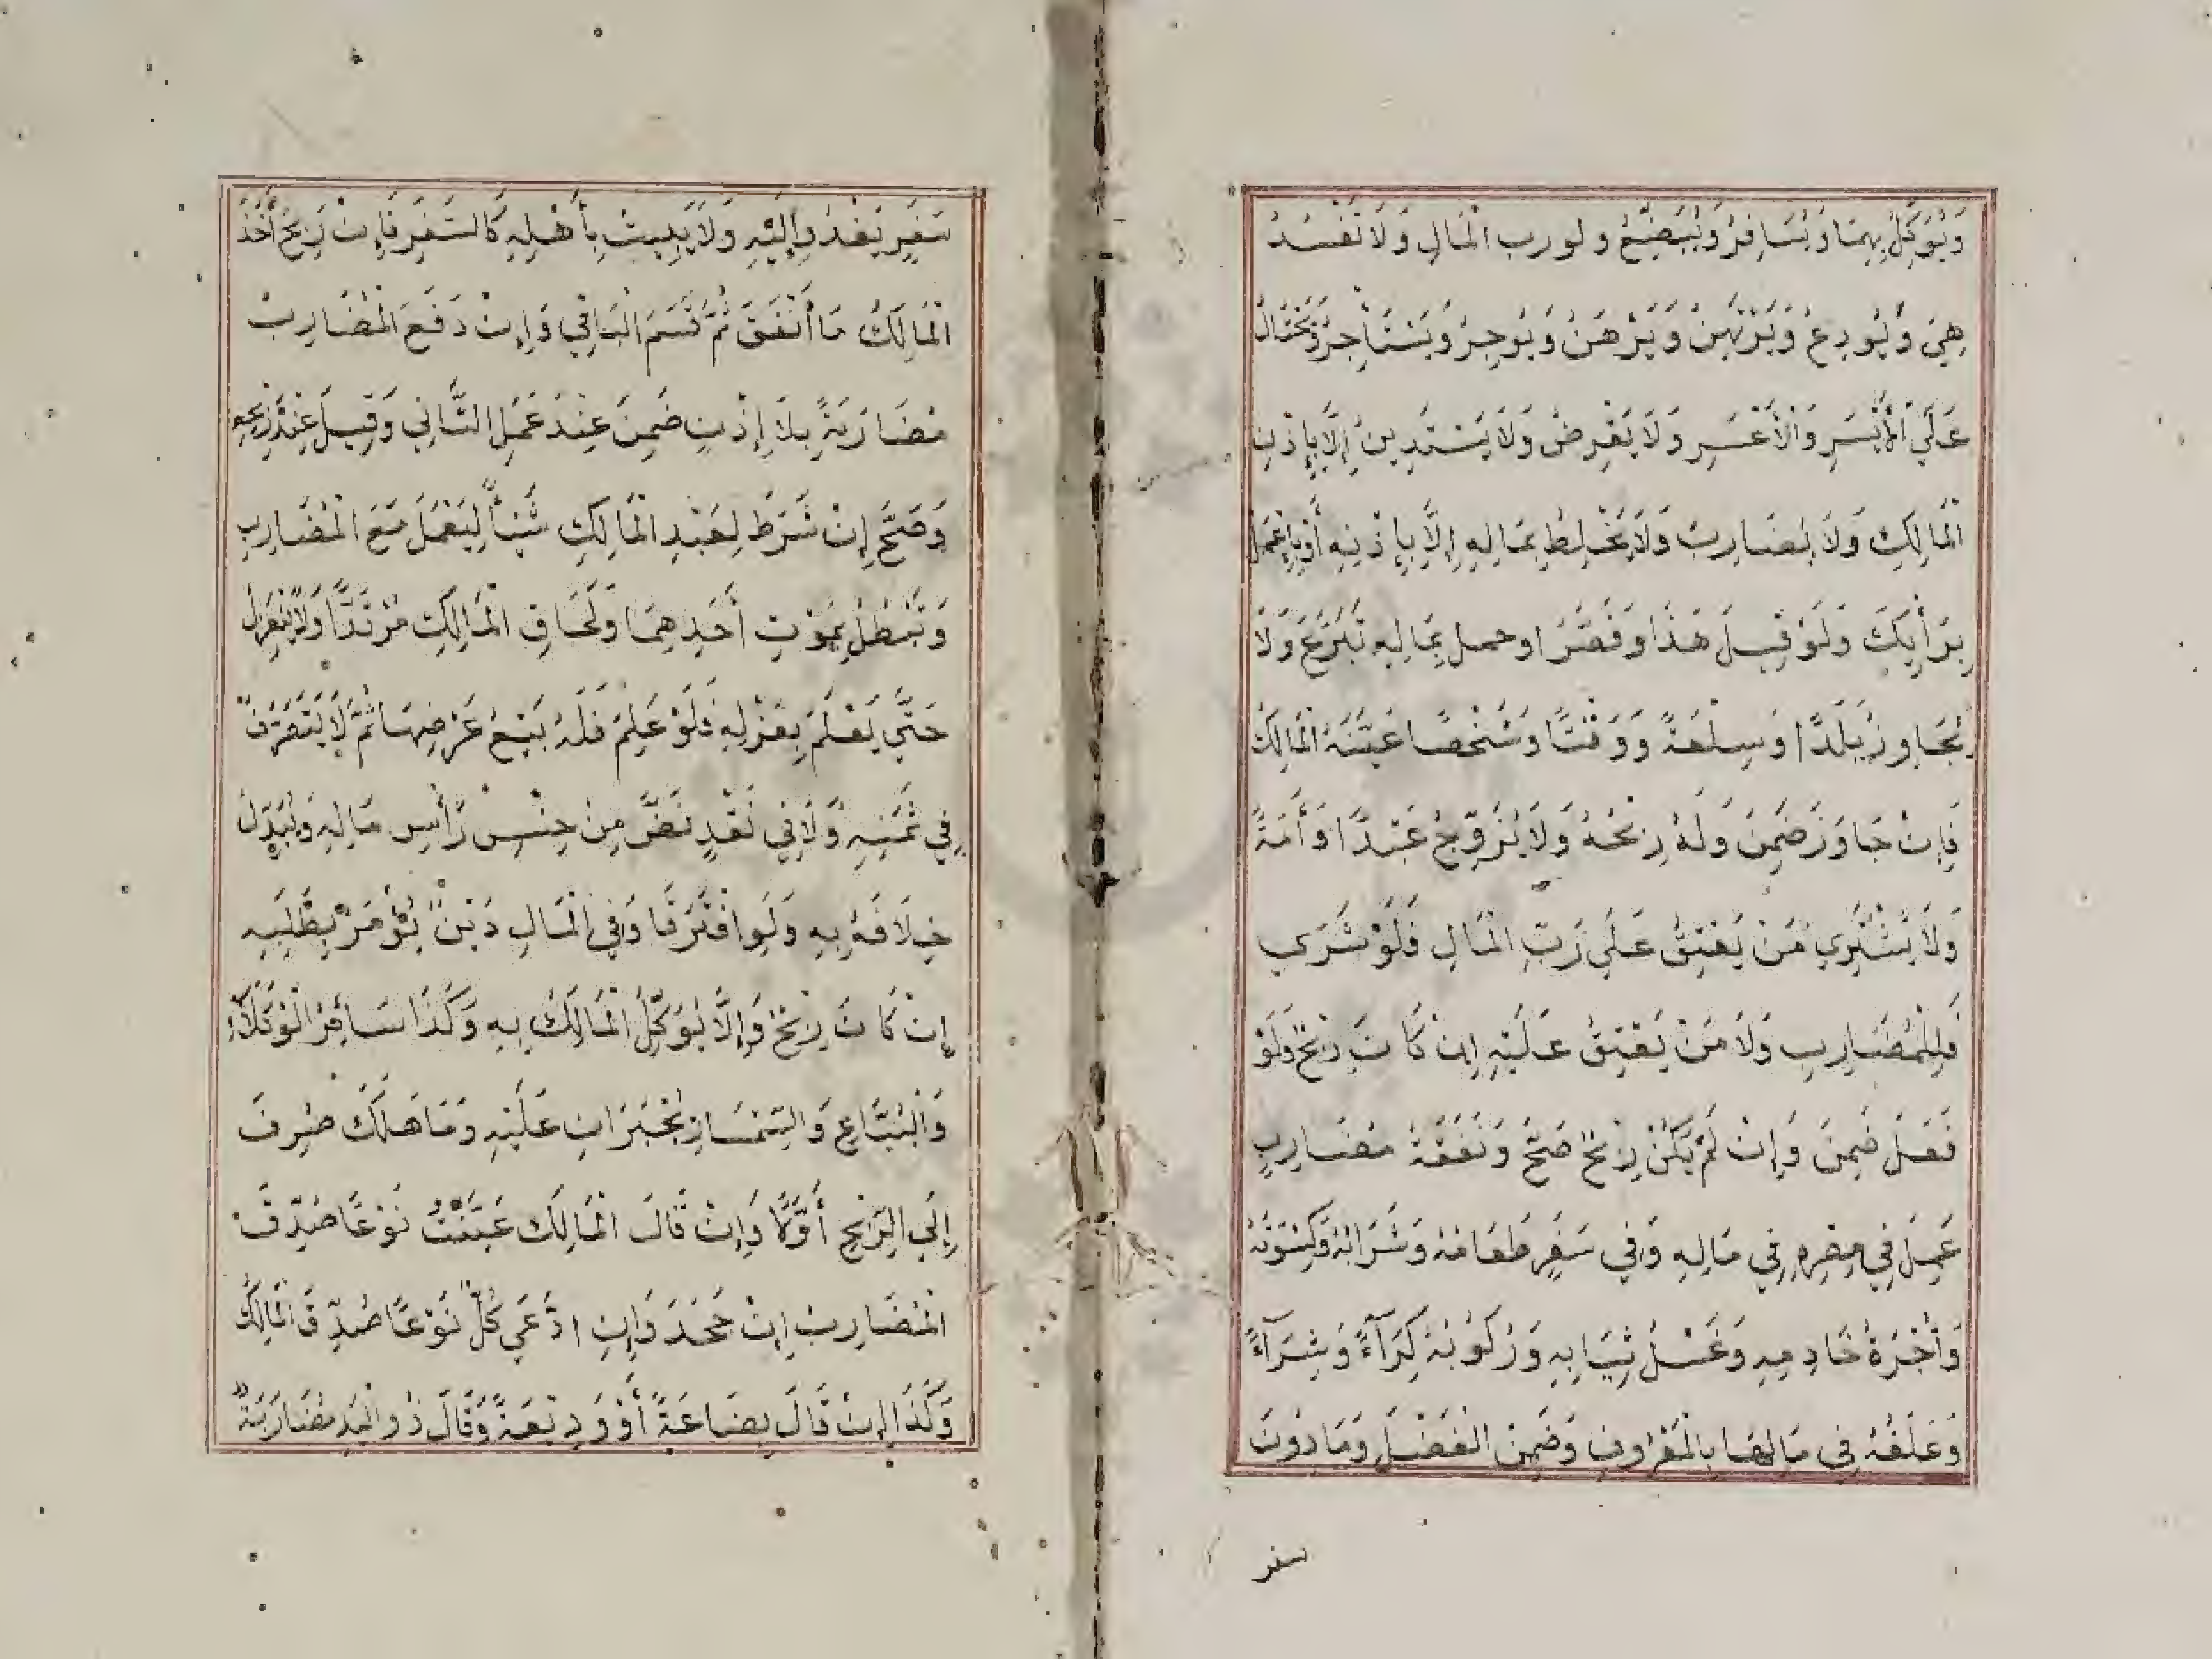 وَيُوَكِّلُ بِهِمَا وَيُسَافِرُ وَيُبَضِّعُ ولورب الْمَالِ وَلَا تَفْسُدُ
هِيَ وَيُودِعُ وَيَرْتَهِنُ وَيَرْهَنُ وَيُوجِرُ وَيَسْتَأْجِرُ وَيَحْتَالُ
عَلَى الْأَيْسَرِ وَالْأَعْسَرِ وَلَا يُقْرِضُ وَلَا يَسْتَدِينُ إِلَّا بِإِذْنِ
الْمَالِكِ وَلَا يُضَارِبُ وَلَا يَخْلِطُ بِمَالِهِ إِلَّا بِإِذْنِهِ أَوْ بِإِعْمَلْ
بِرَأْيِكَ وَلَوْ قِيلَ هَذَا وَقَصَّرَ اوحمل بِمَالِهِ تَبَرَّعَ وَلَا
يُجَاوِزُ بَلَدًا وَسِلْعَةً وَوَقْتًا وَشَخْصًا عَيَّنَهُ الْمَالِكُ
فَإِنْ جَاوَزَ ضَمِنَ وَلَهُ رِبْحُهُ وَلَا يُزَوِّجُ عَبْدًا وَأَمَةً
وَلَا يَشْتَرِي مَنْ يَعْتِقُ عَلَى رَبِّ الْمَالِ فَلَوْ شَرَى
فَلِلْمُضَارِبِ وَلَا مَنْ يَعْتِقُ عَلَيْهِ إِنْ كَانَ رِبْحٌ وَلَوْ
فَعَلَ ضَمِنَ وَإِنْ لَمْ يَكُنْ رِبْحٌ صَحَّ وَنَفَقَةُ مُضَارِبٍ
عَمِلَ فِي مِصْرِهِ فِي مَالِهِ وَفِي سَفَرٍ طَعَامُهُ وَشَرَابُهُ وَكِسْوَتُهُ
وَأُجْرَةُ خَادِمِهِ وَغَسْلُ ثِيَابِهِ وَرُكُوبُهُ كِرَآءً وَشِرَآءً
وَعَلَفُهُ فِي مَالِهَا بِالْمَعْرُوفِ وَضَمِنَ الْفَضْلَ وَمَا دُونَ
سفر
سَفَرٍ يَغْدُو إِلَيْهِ وَلَا يَبِيتُ بِأَهْلِهِ كَالسَّفَرِ فَإِنْ رَبِحَ أَخَذَ
الْمَالِكُ مَا أَنْفَقَ ثُمَّ قَسَمَ الْبَاقِي وَإِنْ دَفَعَ الْمُضَارِبُ
مُضَارَبَةً بِلَا إِذْنٍ ضَمِنَ عِنْدَ عَمَلِ الثَّانِي وَقِيلَ عِنْدَ رِبْحِهِ
وَصَحَّ إِنْ شَرَطَ لِعَبْدِ الْمَالِكِ شَيْئًا لِيَعْمَلَ مَعَ الْمُضَارِبِ
وَتَبْطُلُ بِمَوْتِ أَحَدِهِمَا وَلَحَاقِ الْمَالِكِ مُرْتَدًّا وَلَا يَنْعَزِلُ
حَتَّى يَعْلَمَ بِعَزْلِهِ فَلَوْ عَلِمَ فَلَهُ بَيْعُ عَرْضِهَا ثُمَّ لَا يَتَصَرَّفُ
فِي ثَمَنِهِ وَلَا فِي نَقْدٍ نَضَّ مِنْ جِنْسِ رَأْسِ مَالِهِ وَيُبَدِّلُ
خِلَافَهُ بِهِ وَلَوِ افْتَرَقَا وَفِي الْمَالِ دَيْنٌ يُؤْمَرُ بِطَلَبِهِ
إِنْ كَانَ رِبْحٌ وَإِلَّا يُوَكِّلُ الْمَالِكَ بِهِ وَكَذَا سَائِرُ الْوُكَلَاءِ
وَالْبَيَّاعِ وَالسِّمْسَارِ يُجْبَرَانِ عَلَيْهِ وَمَا هَلَكَ صُرِفَ
إِلَى الرِّبْحِ أَوَّلًا وَإِنْ قَالَ الْمَالِكُ عَيَّنْتُ نَوْعًا صُدِّقَ
الْمُضَارِبُ إِنْ جَحَدَ وَإِنِ ادَّعَى كُلٌّ نَوْعًا صُدِّقَ الْمَالِكُ
وَكَذَا إِنْ قَالَ بِضَاعَةً أَوْ وَدِيعَةً وَقَالَ ذُو الْيَدِ مُضَارَبَةً